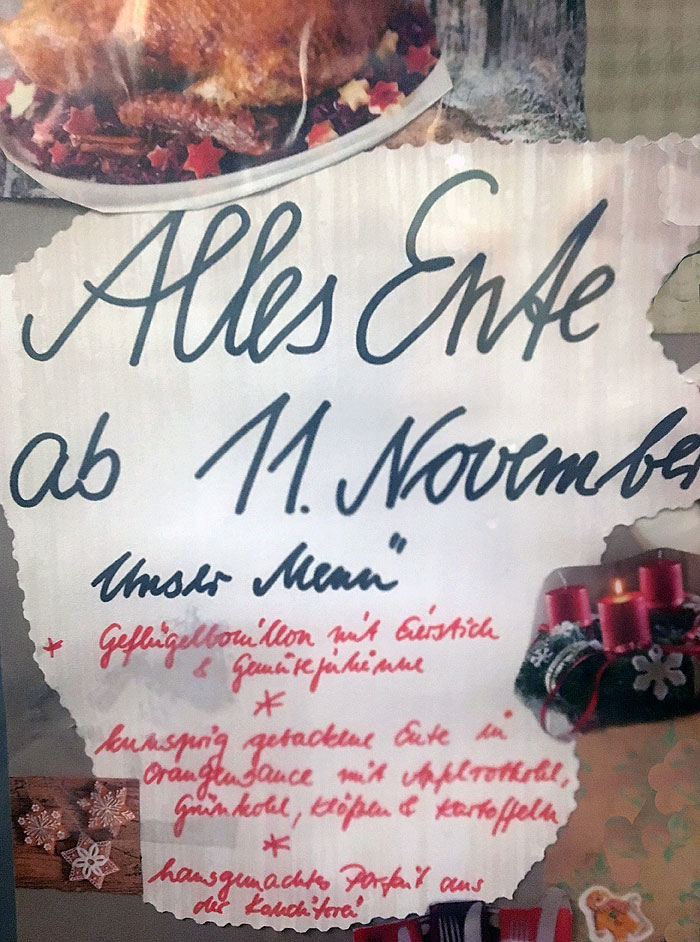 Alles Ente
ab 11. November
Unser Menü
* Geflügelbouillon mit Eierstich
& Gemüsejulienne
*
knusprig gebackene Ente in
Orangensauce mit Apfelrotkohl,
Grünkohl, Klößen & Kartoffeln
*
hausgemachtes Parfait aus
der Konditorei